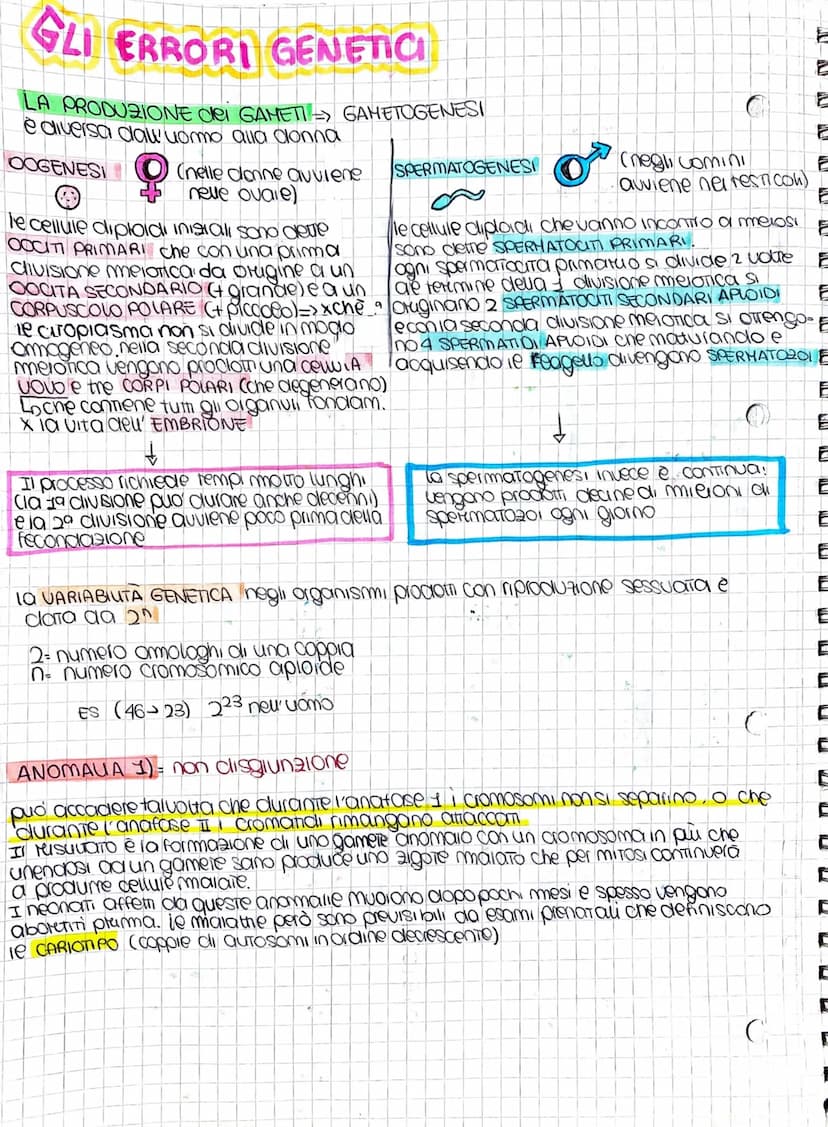 GLI ERRORI GENETICI
LA PRODUZIONE dei GAMETI => GAMETOGENESI
è diversa dall'uomo alla donna
OOGENESI (nelle donne avviene
nelle ovaie)
le cellule diploidi iniziali sono dette
OOCITI PRIMARI che con una prima
divisione meiotica da origine a un
OOCITA SECONDARIO (+ grande) e a un
CORPUSCOLO POLARE (+ piccolo) => xchè
le citoplasma non si divide in modo
omogeneo, nella seconda divisione
meiotica vengono prodotti una CELLULA
UOVO e tre CORPI POLARI (che degenerano)
↳ che contiene tutti gli organuli fondam.
x la vita dell' EMBRIONE
↓
Il processo richiede tempi molto lunghi
(la 1ª divisione può durare anche decenni)
e la 2ª divisione avviene poco prima della
fecondazione
SPERMATOGENESI (negli uomini
avviene nei testicoli)
le cellule diploidi che vanno incontro a meiosi
sono dette SPERMATOCITI PRIMARI.
ogni spermatocita primario si divide 2 volte
al termine della 1 divisione meiotica si
originano 2 SPERMATOCITI SECONDARI APLOIDI
e con la seconda divisione meiotica si ottengo-
no 4 SPERMATIDI APLOIDI che maturando e
acquisendo le flagello divengono SPERMATOZOI
↓
la spermatogenesi invece è continua:
vengono prodotti decine di milioni di
spermatozoi ogni giorno
la VARIABILITÀ GENETICA negli organismi prodotti con riproduzione sessuata è
data da 2ⁿ
2= numero omologhi di una coppia
n= numero cromosomico aploide
ES (46→23) 2²³ nell'uomo
ANOMALIA 1)= non disgiunzione
può accadere talvolta che durante l'anafase 1 i cromosomi non si separino, o che
durante l'anafase II i cromatidi rimangano attaccati
Il risultato è la formazione di uno gamete anomalo con un cromosoma in più che
unendosi ad un gamete sano produce uno zigote malato che per mitosi continuerà
a produrre cellule malate.
I neonati affetti da queste anormalie muoiono dopo pochi mesi e spesso vengono
abortiti prima. le malattie però sono previsibili da esami prenatali che definiscono
le CARIOTIPO (coppie di autosomi in ordine decrescente)